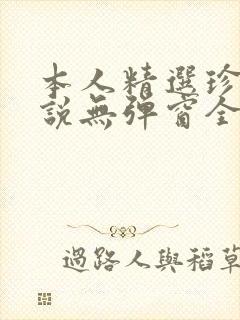 本人精選珍
說無彈窗全
過路人與稻草